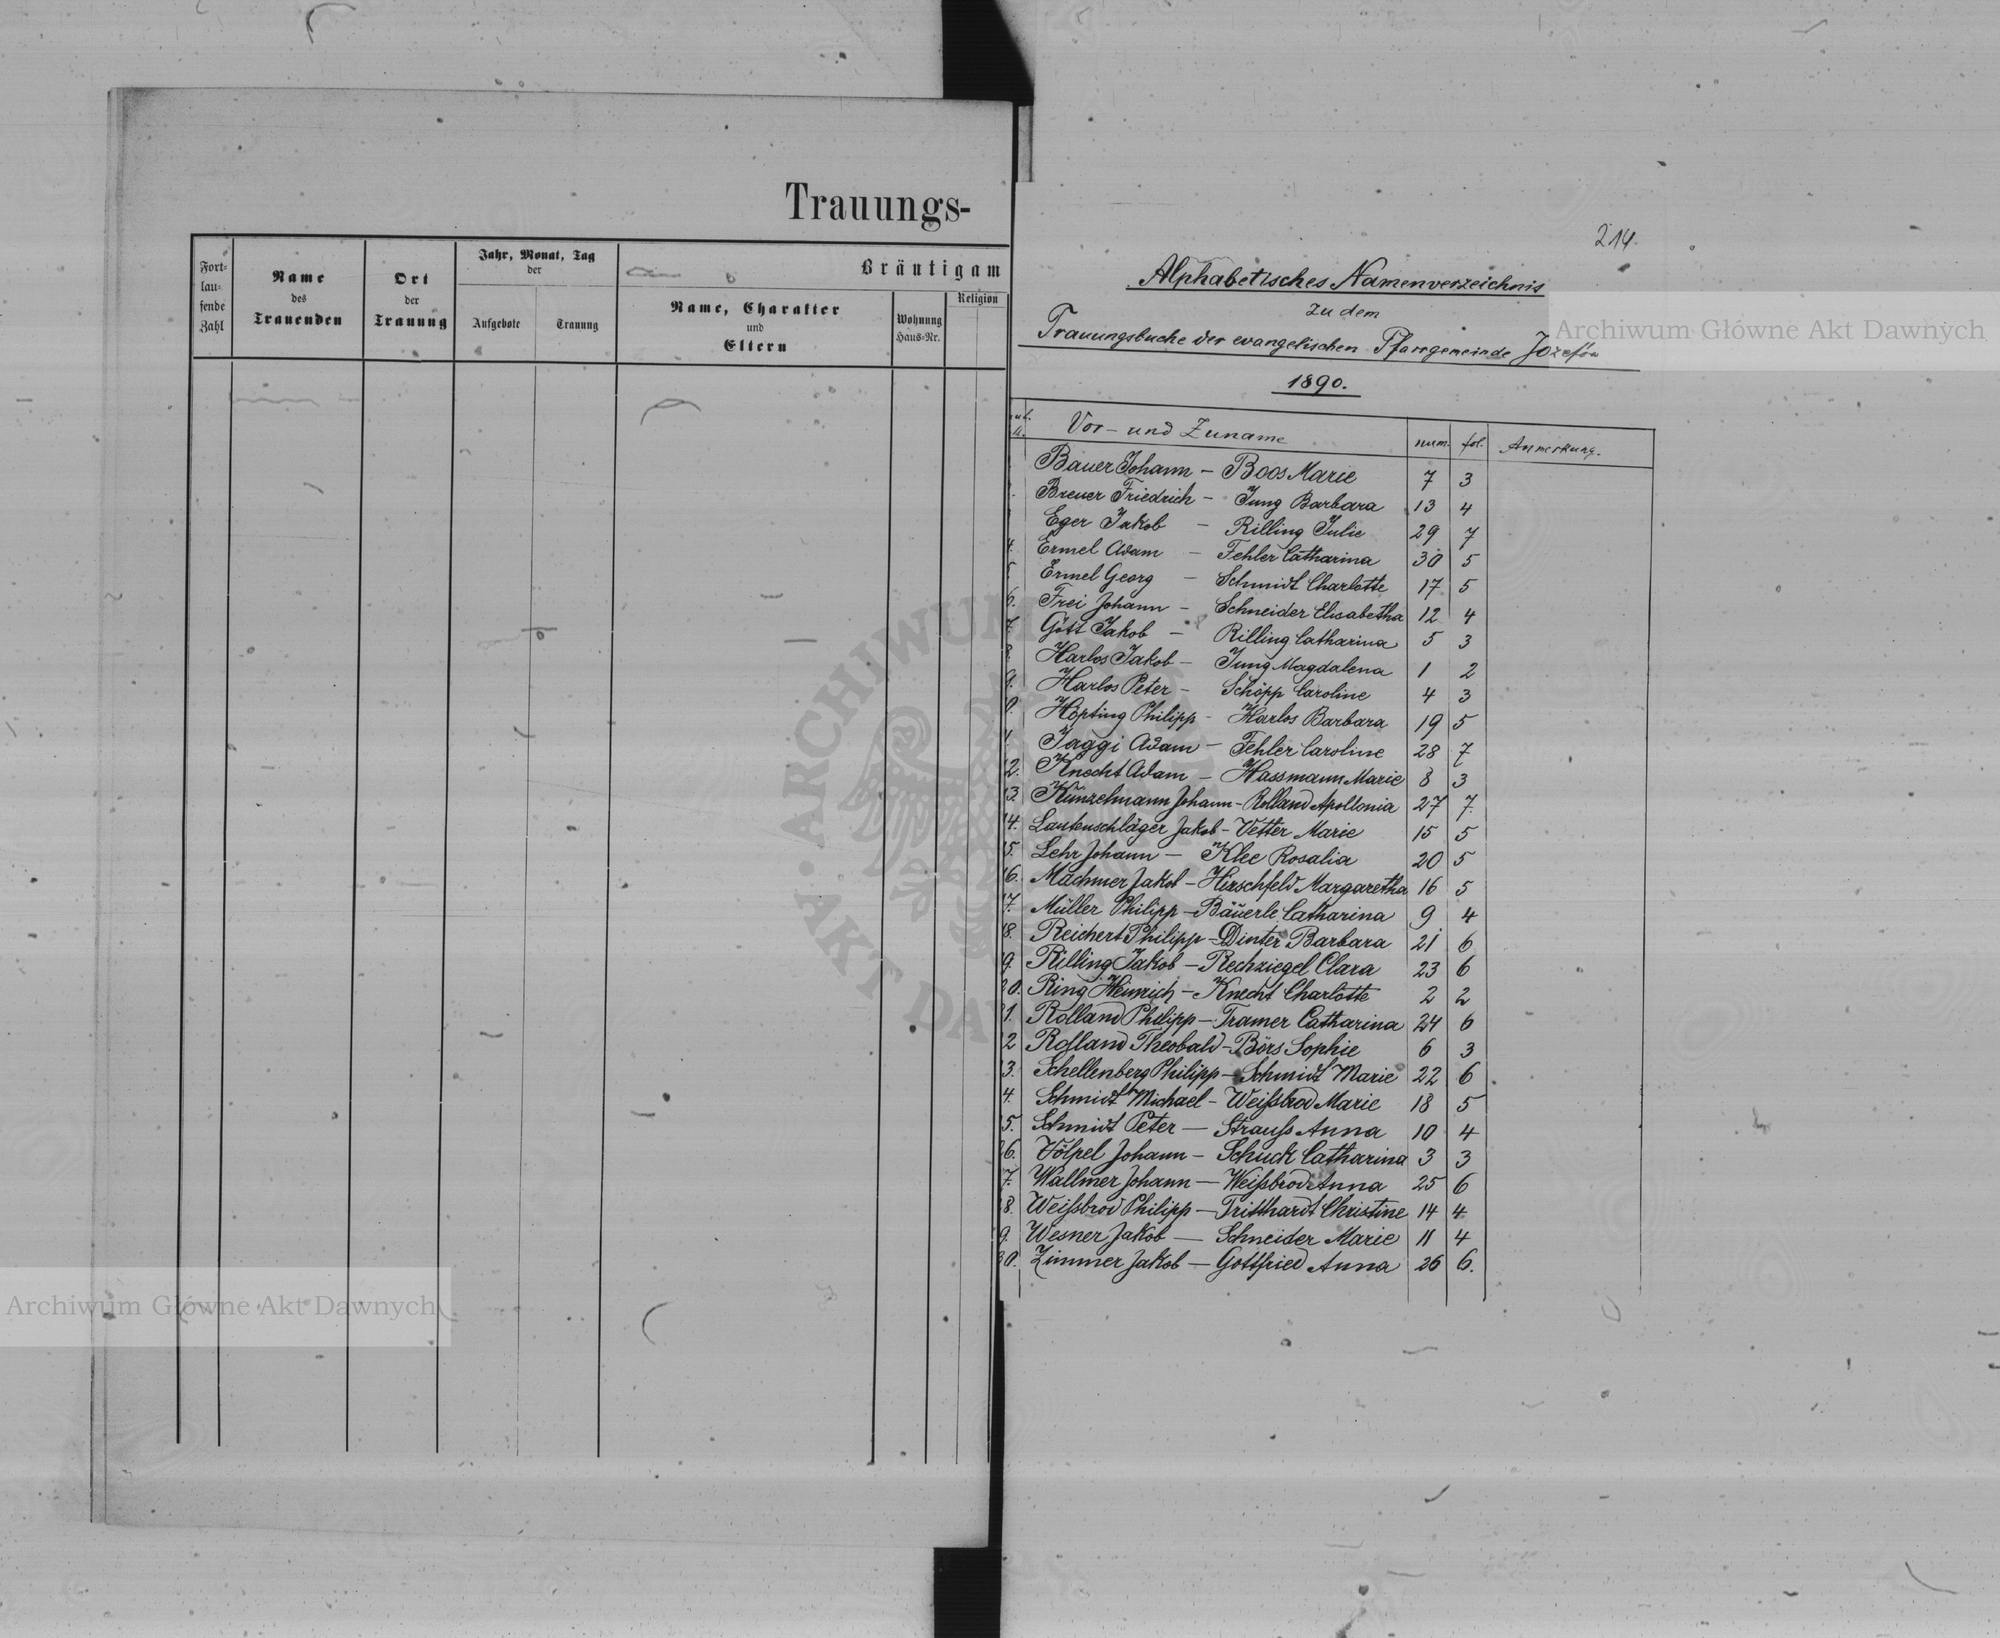 Trauungs-
Fort-
lau-
fende
Zahl
Name
des
Trauenden
Ort
der
Trauung
Jahr, Monat, Tag
der
Aufgebote
Trauung
Bräutigam
Name, Charakter
und
Eltern
Wohnung
Haus-Nr.
Religion
214.
Alphabetisches Namenverzeichnis
zu dem
Trauungsbuche der evangelischen Pfarrgemeinde Józefów
1890.
Vor- und Zuname num. fol. Anmerkung.
Bauer Johann - Boos Marie 7 3
Breuer Friedrich - Jung Barbara 13 4
Eger Jakob - Rilling Julie 29 7
4. Ermel Adam - Fehler Catharina 30 5
5 Ermel Georg - Schmidt Charlotte 17 5
6. Frei Johann - Schneider Elisabetha 12 4
7. Gött Jakob - Rilling Catharina 5 3
8. Harlos Jakob - Jung Magdalena 1 2
9. Harlos Peter - Schöpp Caroline 4 3
0. Höpting Philipp - Harlos Barbara 19 5
1. Jaggi Adam - Fehler Caroline 28 7
2. Knecht Adam - Hassmann Marie 8 3
13. Künzelmann Johann - Rolland Apollonia 27 7.
14. Lautenschläger Jakob - Vetter Marie 15 5
15. Lehr Johann - Klee Rosalia 20 5
16. Machmer Jakob - Hirschfeld Margaretha 16 5
17. Müller Philipp - Bäuerle Catharina 9 4
18. Reichert Philipp - Dinter Barbara 21 6
9. Rilling Jakob - Rechziegel Clara 23 6
20. Ring Heinrich - Knecht Charlotte 2 2
1. Rolland Philipp - Tramer Catharina 24 6
2 Rolland Theobald - Börs Sophie 6 3
3. Schellenberg Philipp - Schmidt Marie 22 6
4. Schmidt Michael - Weißbrod Marie 18 5
5. Schmidt Peter - Strauß Anna 10 4
26. Völpel Johann - Schuck Catharina 3 3
7. Wallmer Johann - Weißbrod Anna 25 6
8. Weißbrod Philipp - Tritthardt Christine 14 4
9. Wesner Jakob - Schneider Marie 11 4
30. Zimmer Jakob - Gottfried Anna 26 6.
Archiwum Główne Akt Dawnych
Archiwum Główne Akt Dawnych